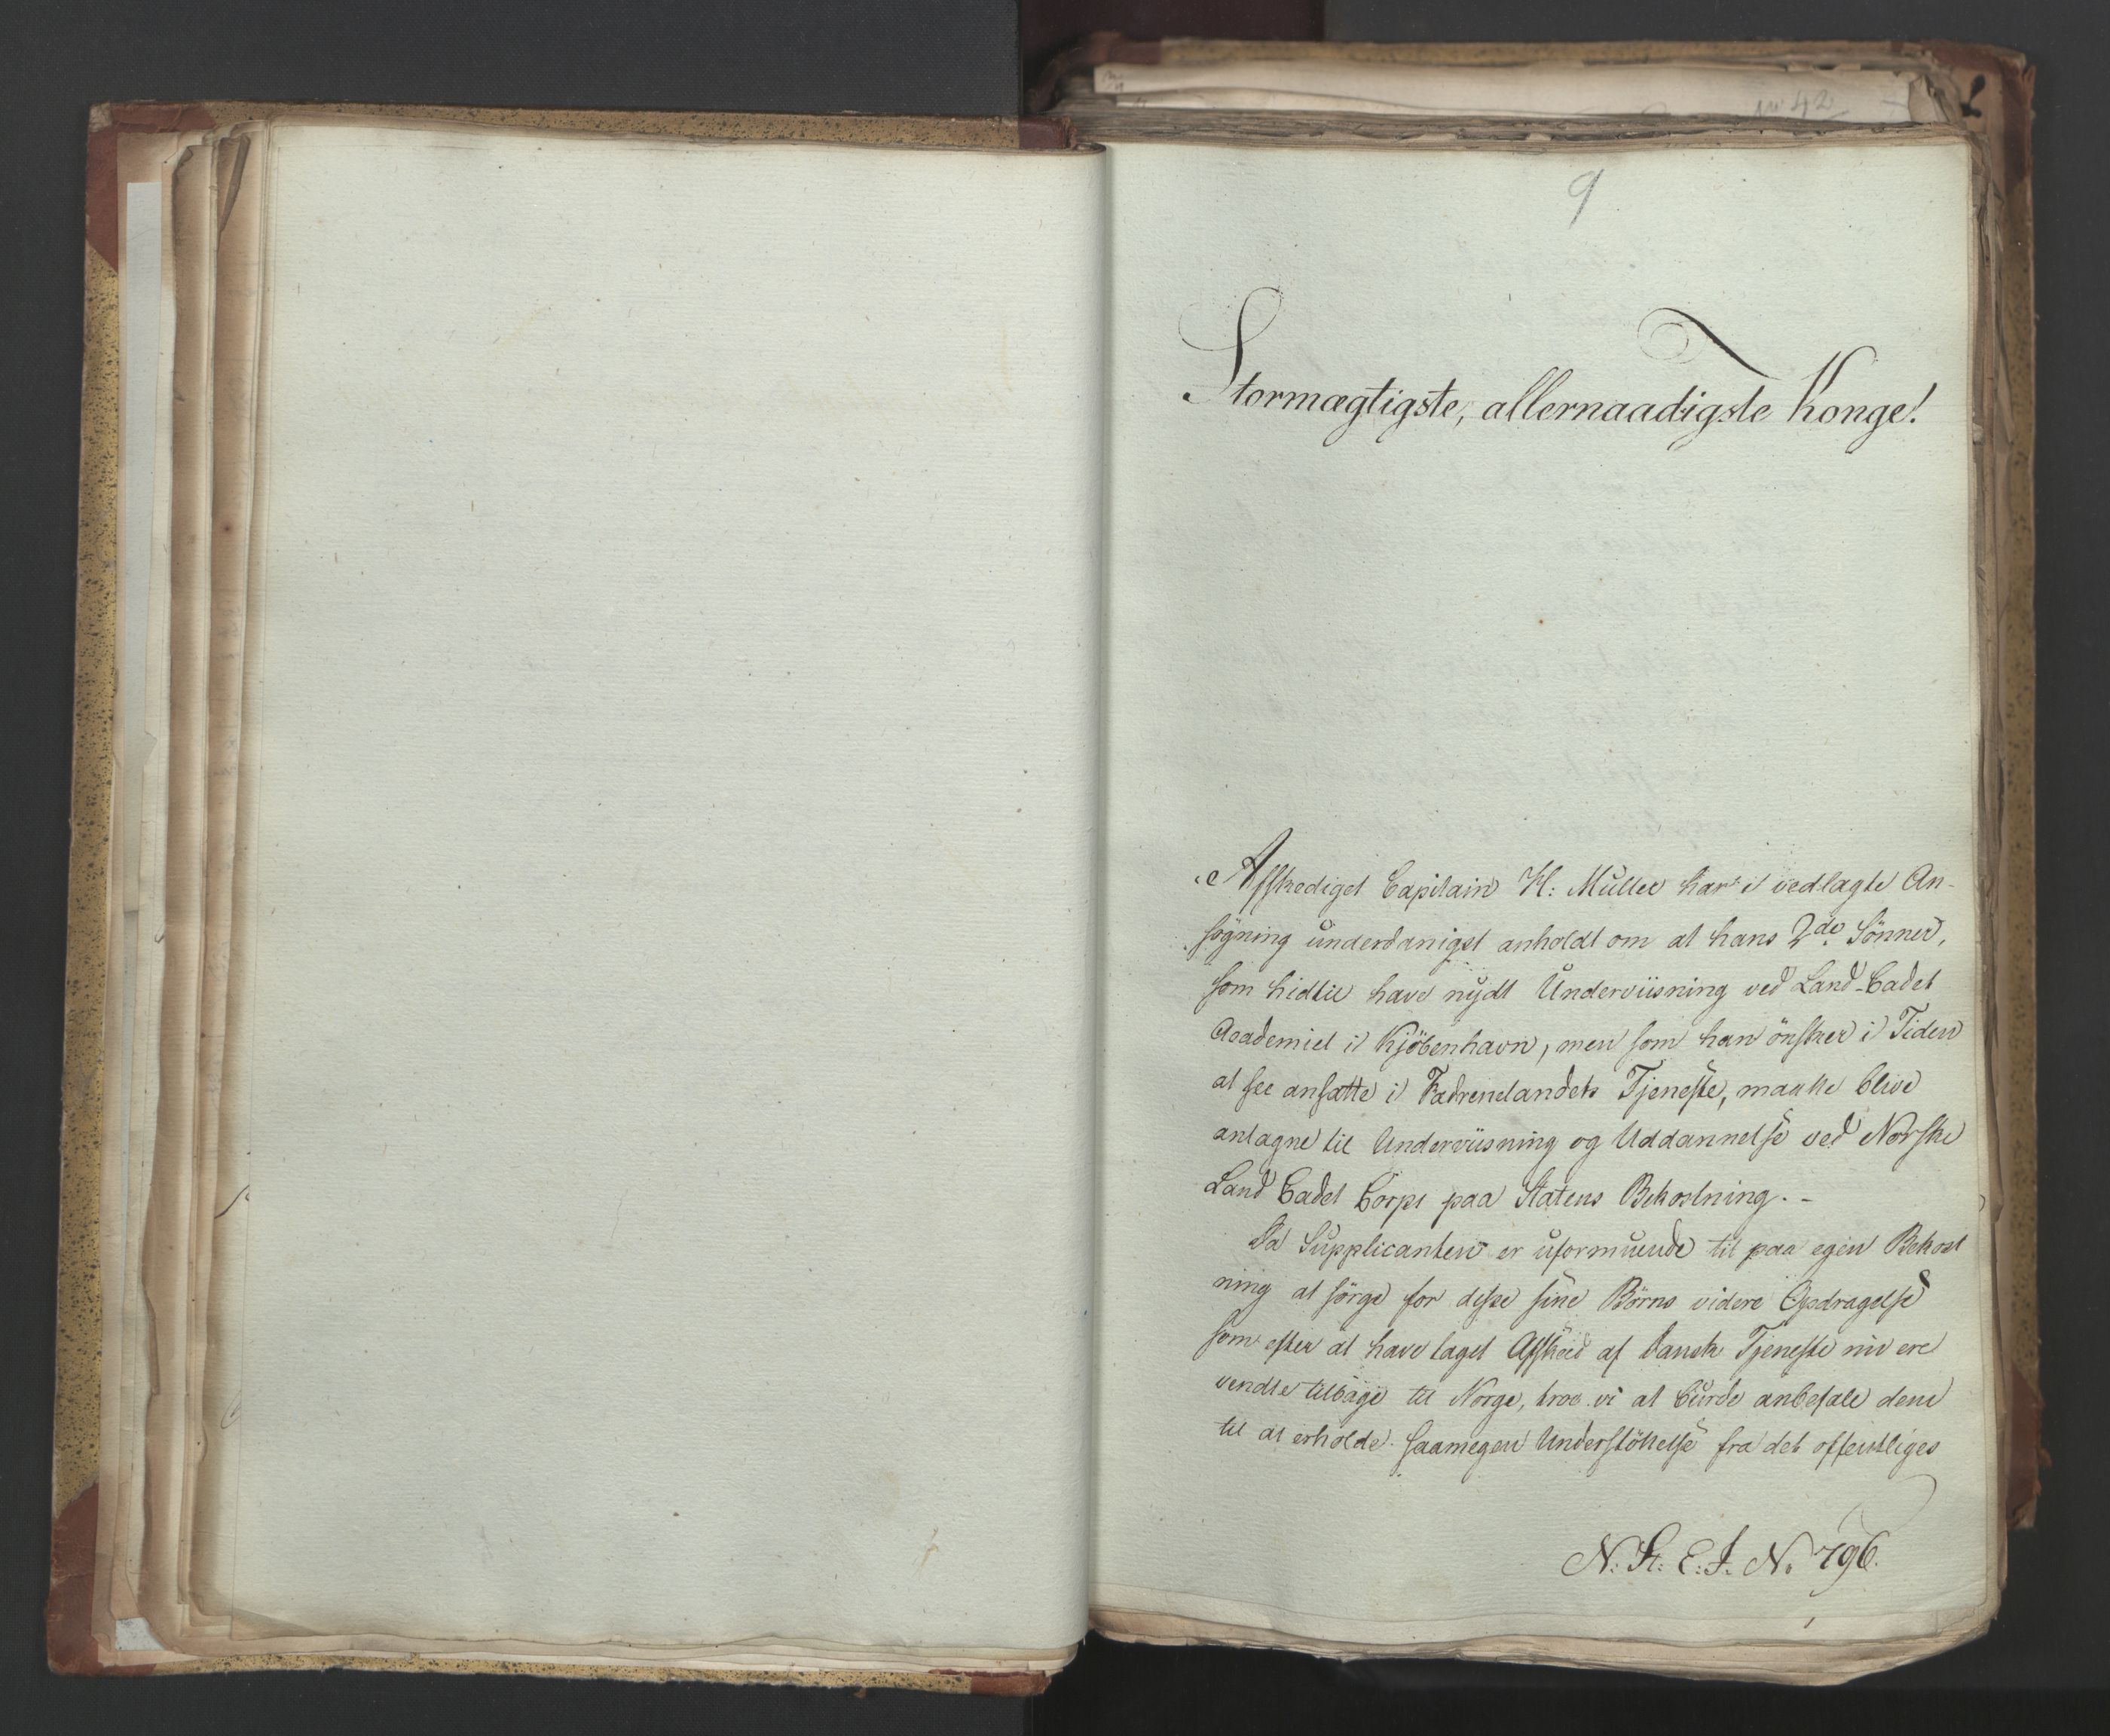 No 42
9
Stormægtigste, allernaadigste Konge!
Afskediget Capitain H: Müller har i vedlagte An-
søgning underdanigst anholdt om at hans 2de Sönner,
som hidtil have nydt Underviisning ved Land-Cadet
Academiet i Kjöbenhavn, men som han önsker i Tiden
at see ansatte i Fædrenelandets Tjeneste, maatte blive
antagne til Underviisning og Uddannelse ved Norske
Land Cadet Corps paa Statens Bekostning. -
Da Supplicanten er uformuende til paa egen Bekost
ning at sörge for disse sine Börns videre Opdragelse
som efter at have taget Afskeed af Dansk Tjeneste nu ere
vendte tilbage til Norge, troe vi at burde anbefale dem
til at erholde saamegen Understöttelse fra det offentliges
N: St: E: I. No 796.